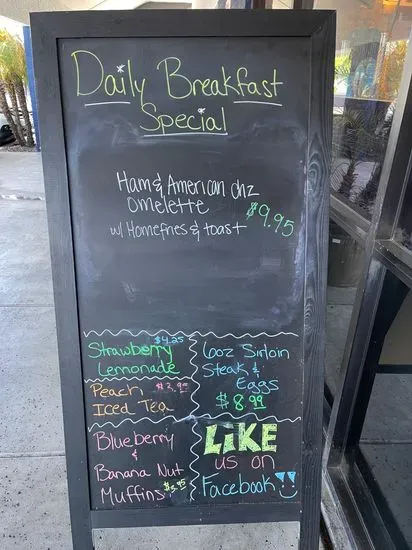 Daily Breakfast
Special
Ham & American chz
omelette $9.95
w/ Homefries & toast
$4.25
Strawberry
Lemonade
Peach
Iced Tea
Blueberry
&
Banana Nut
Muffins
6oz Sirloin
Steak &
Eggs
$8.99
LIKE
us on
Facebook